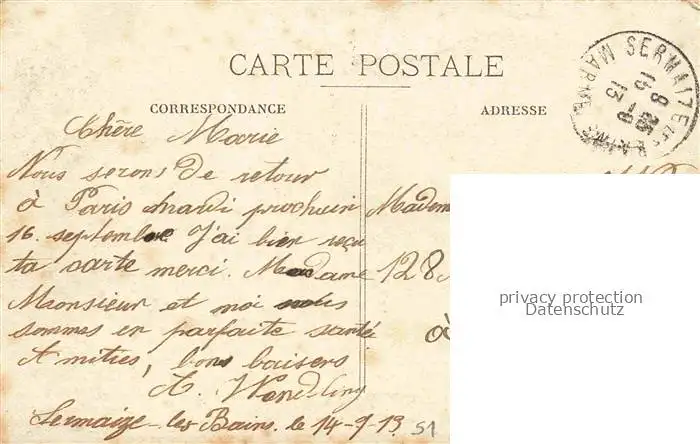 CARTE POSTALE
CORRESPONDANCE
ADRESSE
SERMAIZE
MARNE
Chère Marie
Nous serons de retour
à Paris mardi prochain
16. septembre J'ai bien reçu
ta carte merci. Madame
Monsieur et moi nous
sommes en parfaite santé
Amitiés, bons baisers
A. Wendling
Sermaize-les-Bains. le 14-9-13
51
Madem
128
à
privacy protection
Datenschutz